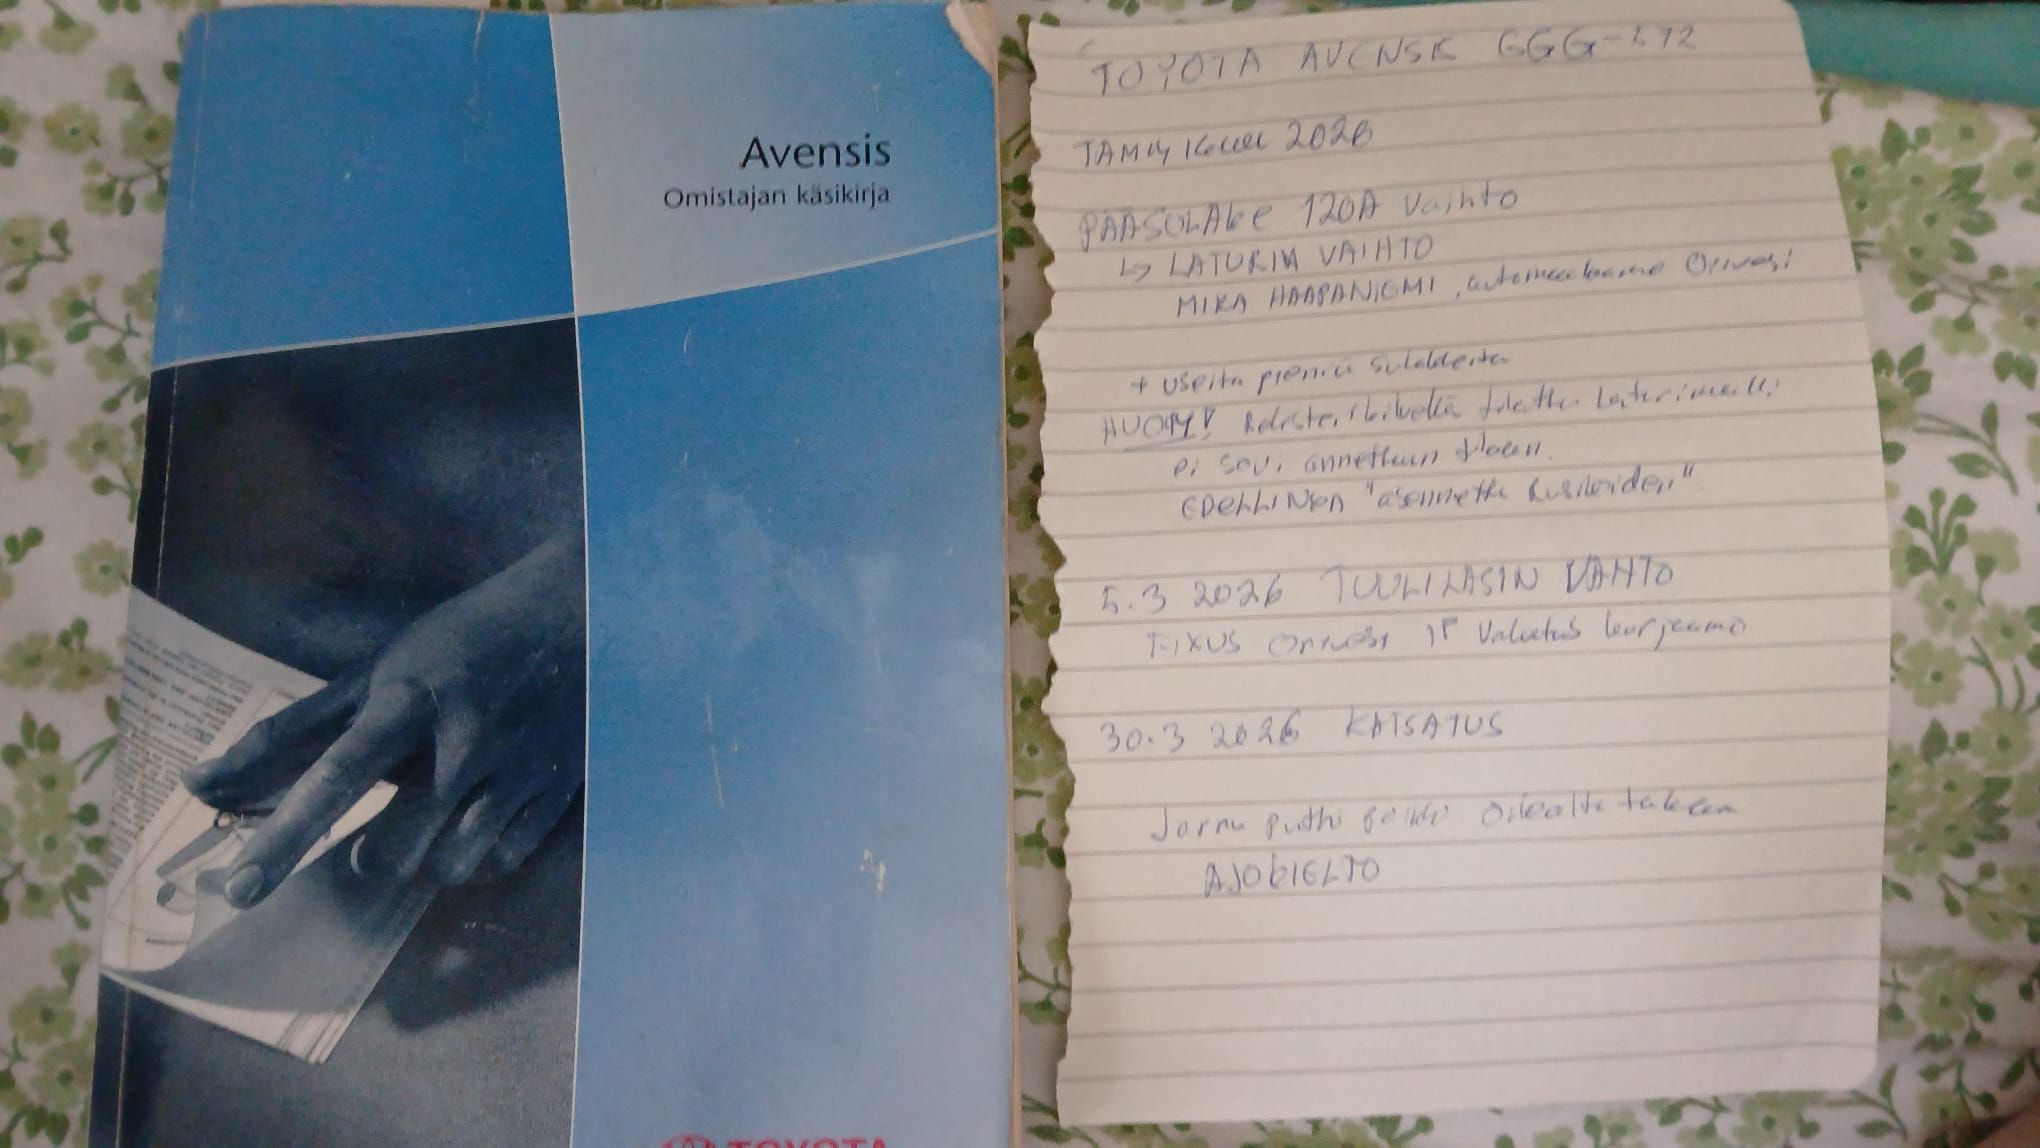 Avensis
Omistajan käsikirja
TOYOTA
TOYOTA AVENSIS GGG-572
TAMMIKUU 2026
PÄÄSULAKE 120A vaihto
↳ LATURIN VAIHTO
MIKA HAAPANIEMI, automaalaamo Orivesi
+ useita pieniä sulakkeita
HUOM! Rekisterikilvellä tilattu laturimalli
ei sovi annettuun tilaan.
EDELLINEN "asennettu kusileiden"
5.3 2026 TUULILASIN VAIHTO
FIXUS Orivesi
30.3 2026 KATSASTUS
Jarru putki poikki oikealta takaa
AJOKIELTO